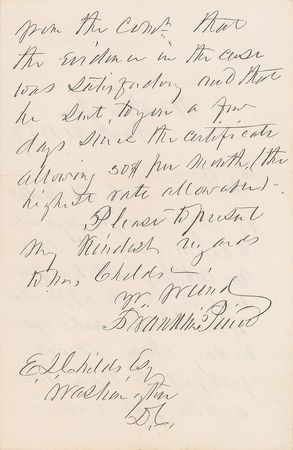 from the Comr. that
the evidence in the case
was satisfactory and that
he sent, to you a few
days since the certificate
allowing 30$ per month, (the
highest rate allowable) -
Please to present
my kindest regards
to Mrs Childs -
Yr. friend
Franklin Pierce
E S Childs Esq
Washington
D.C.